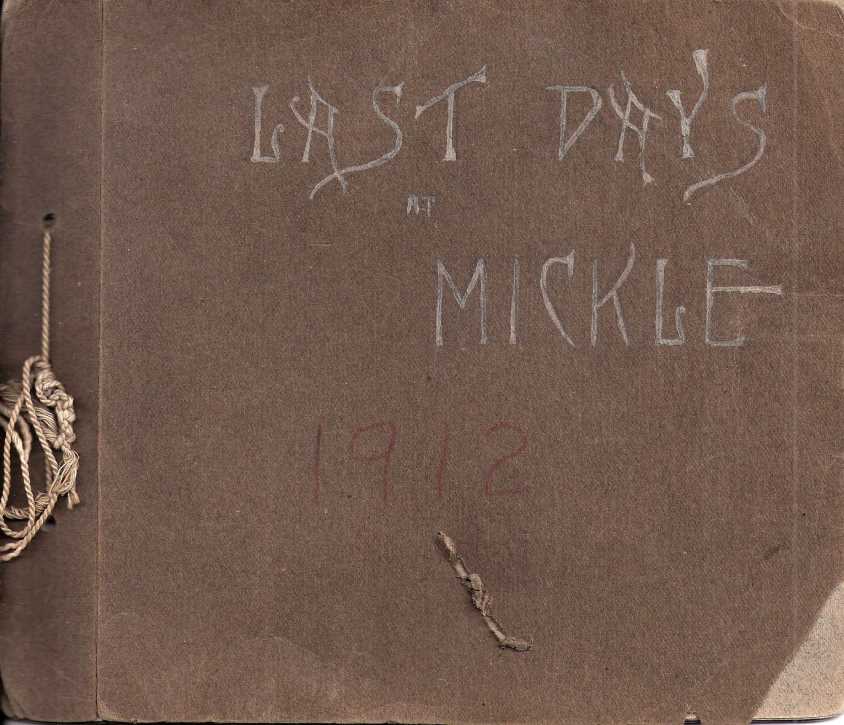 LAST DAYS
AT
MICKLE
1912